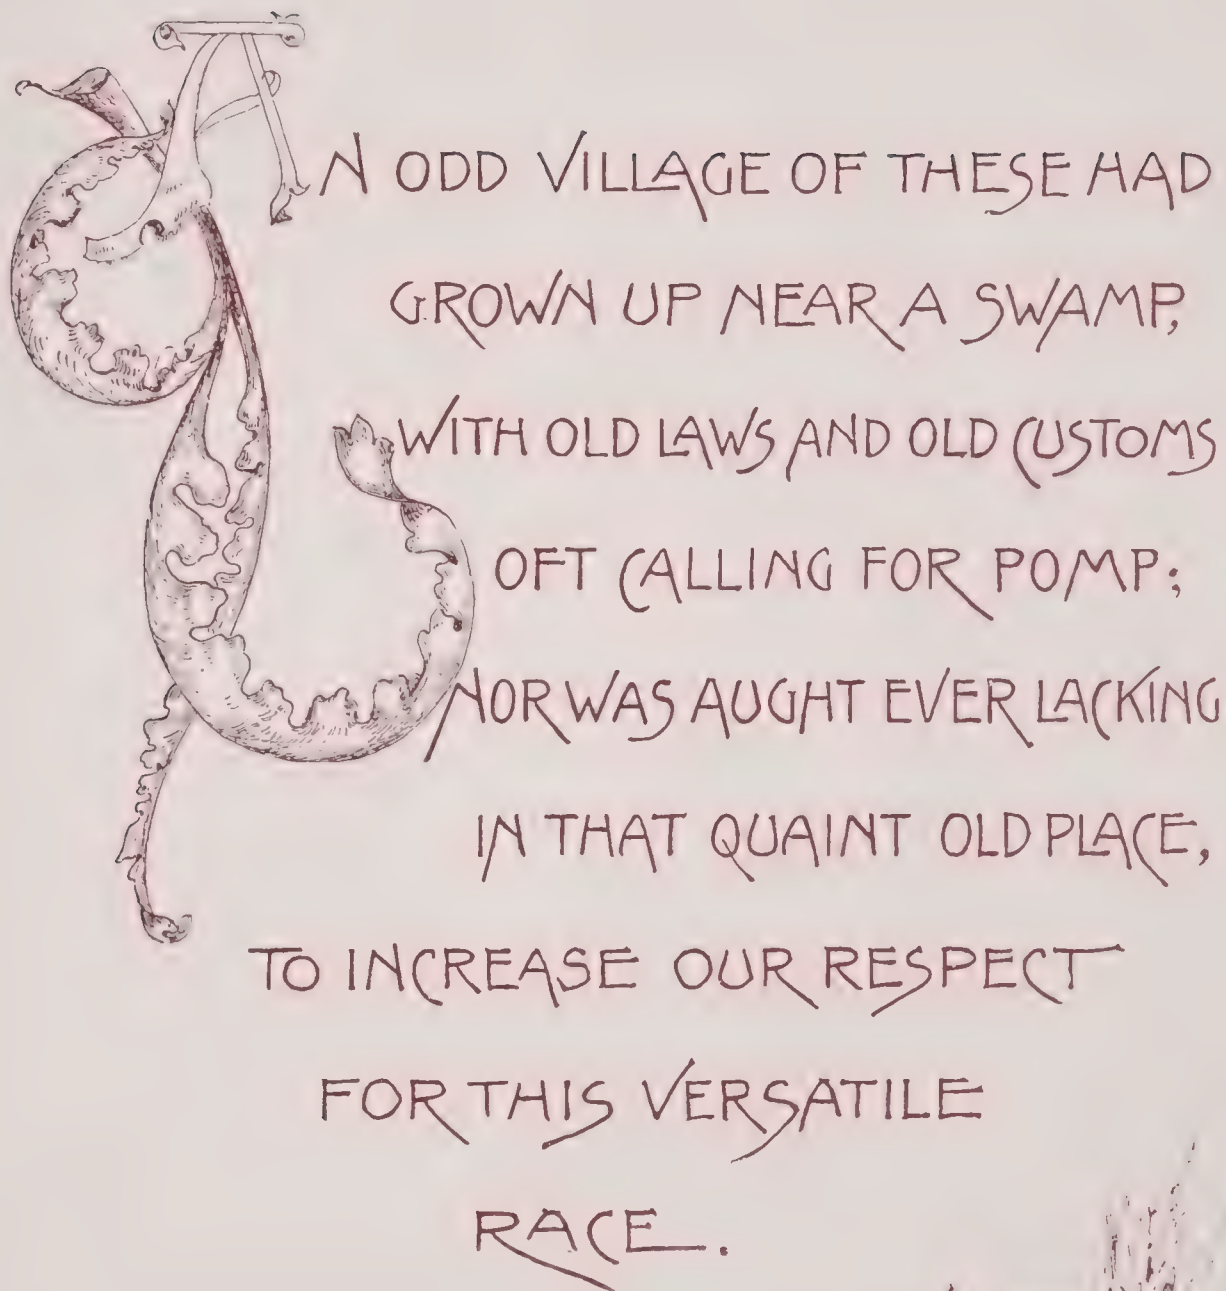 AN ODD VILLAGE OF THESE HAD
GROWN UP NEAR A SWAMP,
WITH OLD LAWS AND OLD CUSTOMS
OFT CALLING FOR POMP;
NOR WAS AUGHT EVER LACKING
IN THAT QUAINT OLD PLACE,
TO INCREASE OUR RESPECT
FOR THIS VERSATILE
RACE.